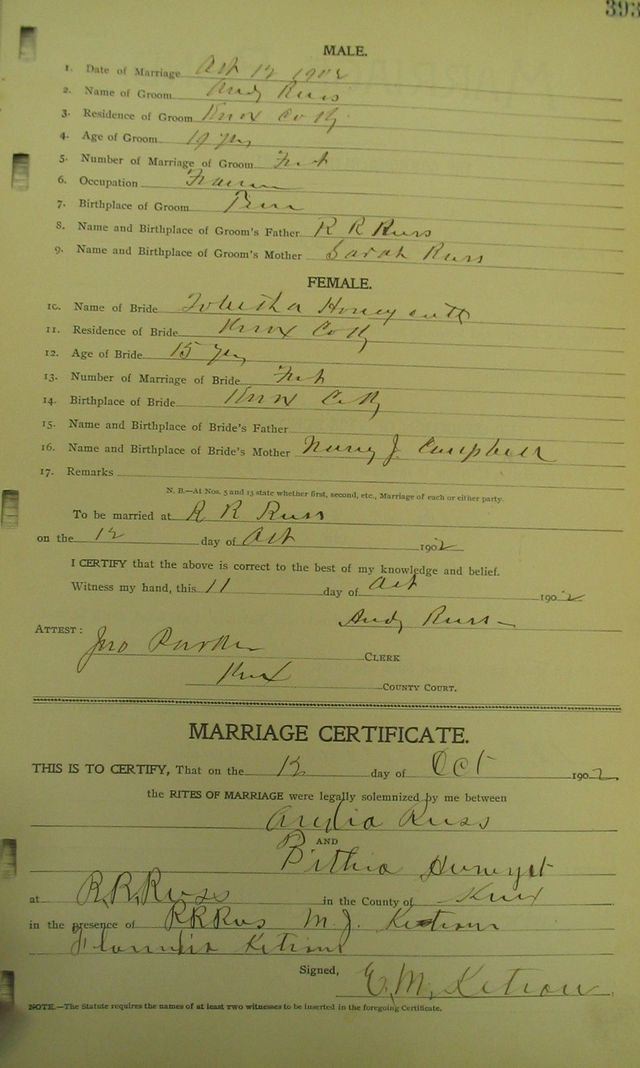 393
MALE.
1. Date of Marriage Oct 12 1902
2. Name of Groom Andy Russ
3. Residence of Groom Knox Co Ky
4. Age of Groom 19 yrs
5. Number of Marriage of Groom First
6. Occupation Farmer
7. Birthplace of Groom Tenn
8. Name and Birthplace of Groom's Father R R Russ
9. Name and Birthplace of Groom's Mother Sarah Russ
FEMALE.
10. Name of Bride Tobitha Honeycutt
11. Residence of Bride Knox Co Ky
12. Age of Bride 15 yrs
13. Number of Marriage of Bride First
14. Birthplace of Bride Knox Co Ky
15. Name and Birthplace of Bride's Father
16. Name and Birthplace of Bride's Mother Nancy J. Campbell
17. Remarks
N. B.—At Nos. 5 and 13 state whether first, second, etc., Marriage of each or either party.
To be married at R R Russ
on the 12 day of Oct 1902
I CERTIFY that the above is correct to the best of my knowledge and belief.
Witness my hand, this 11 day of Oct 1902
Andy Russ
ATTEST:
Jno Parker CLERK
Knox COUNTY COURT.
MARRIAGE CERTIFICATE.
THIS IS TO CERTIFY, That on the 12 day of Oct 1902
the RITES OF MARRIAGE were legally solemnized by me between
Russ
AND
Bithia
at R. R. Russ in the County of Knox
in the presence of R R Rus M. J. Ketron
Ketron
Signed, E. M. Ketron
NOTE.—The Statute requires the names of at least two witnesses to be inserted in the foregoing Certificate.